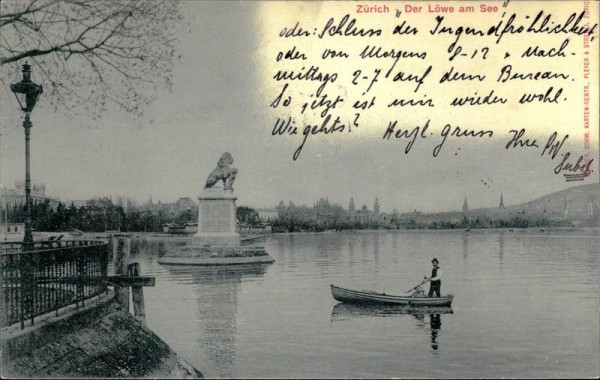 Zürich „Der Löwe am See"
oder: Schluss "der Jugendfröhlichkeit,
oder von Morgens 8-12 & Nach-
mittags 2-7 auf dem Bureau.
So, jetzt ist mir wieder wohl.
Wie gehts? Herzl. gruss Ihre